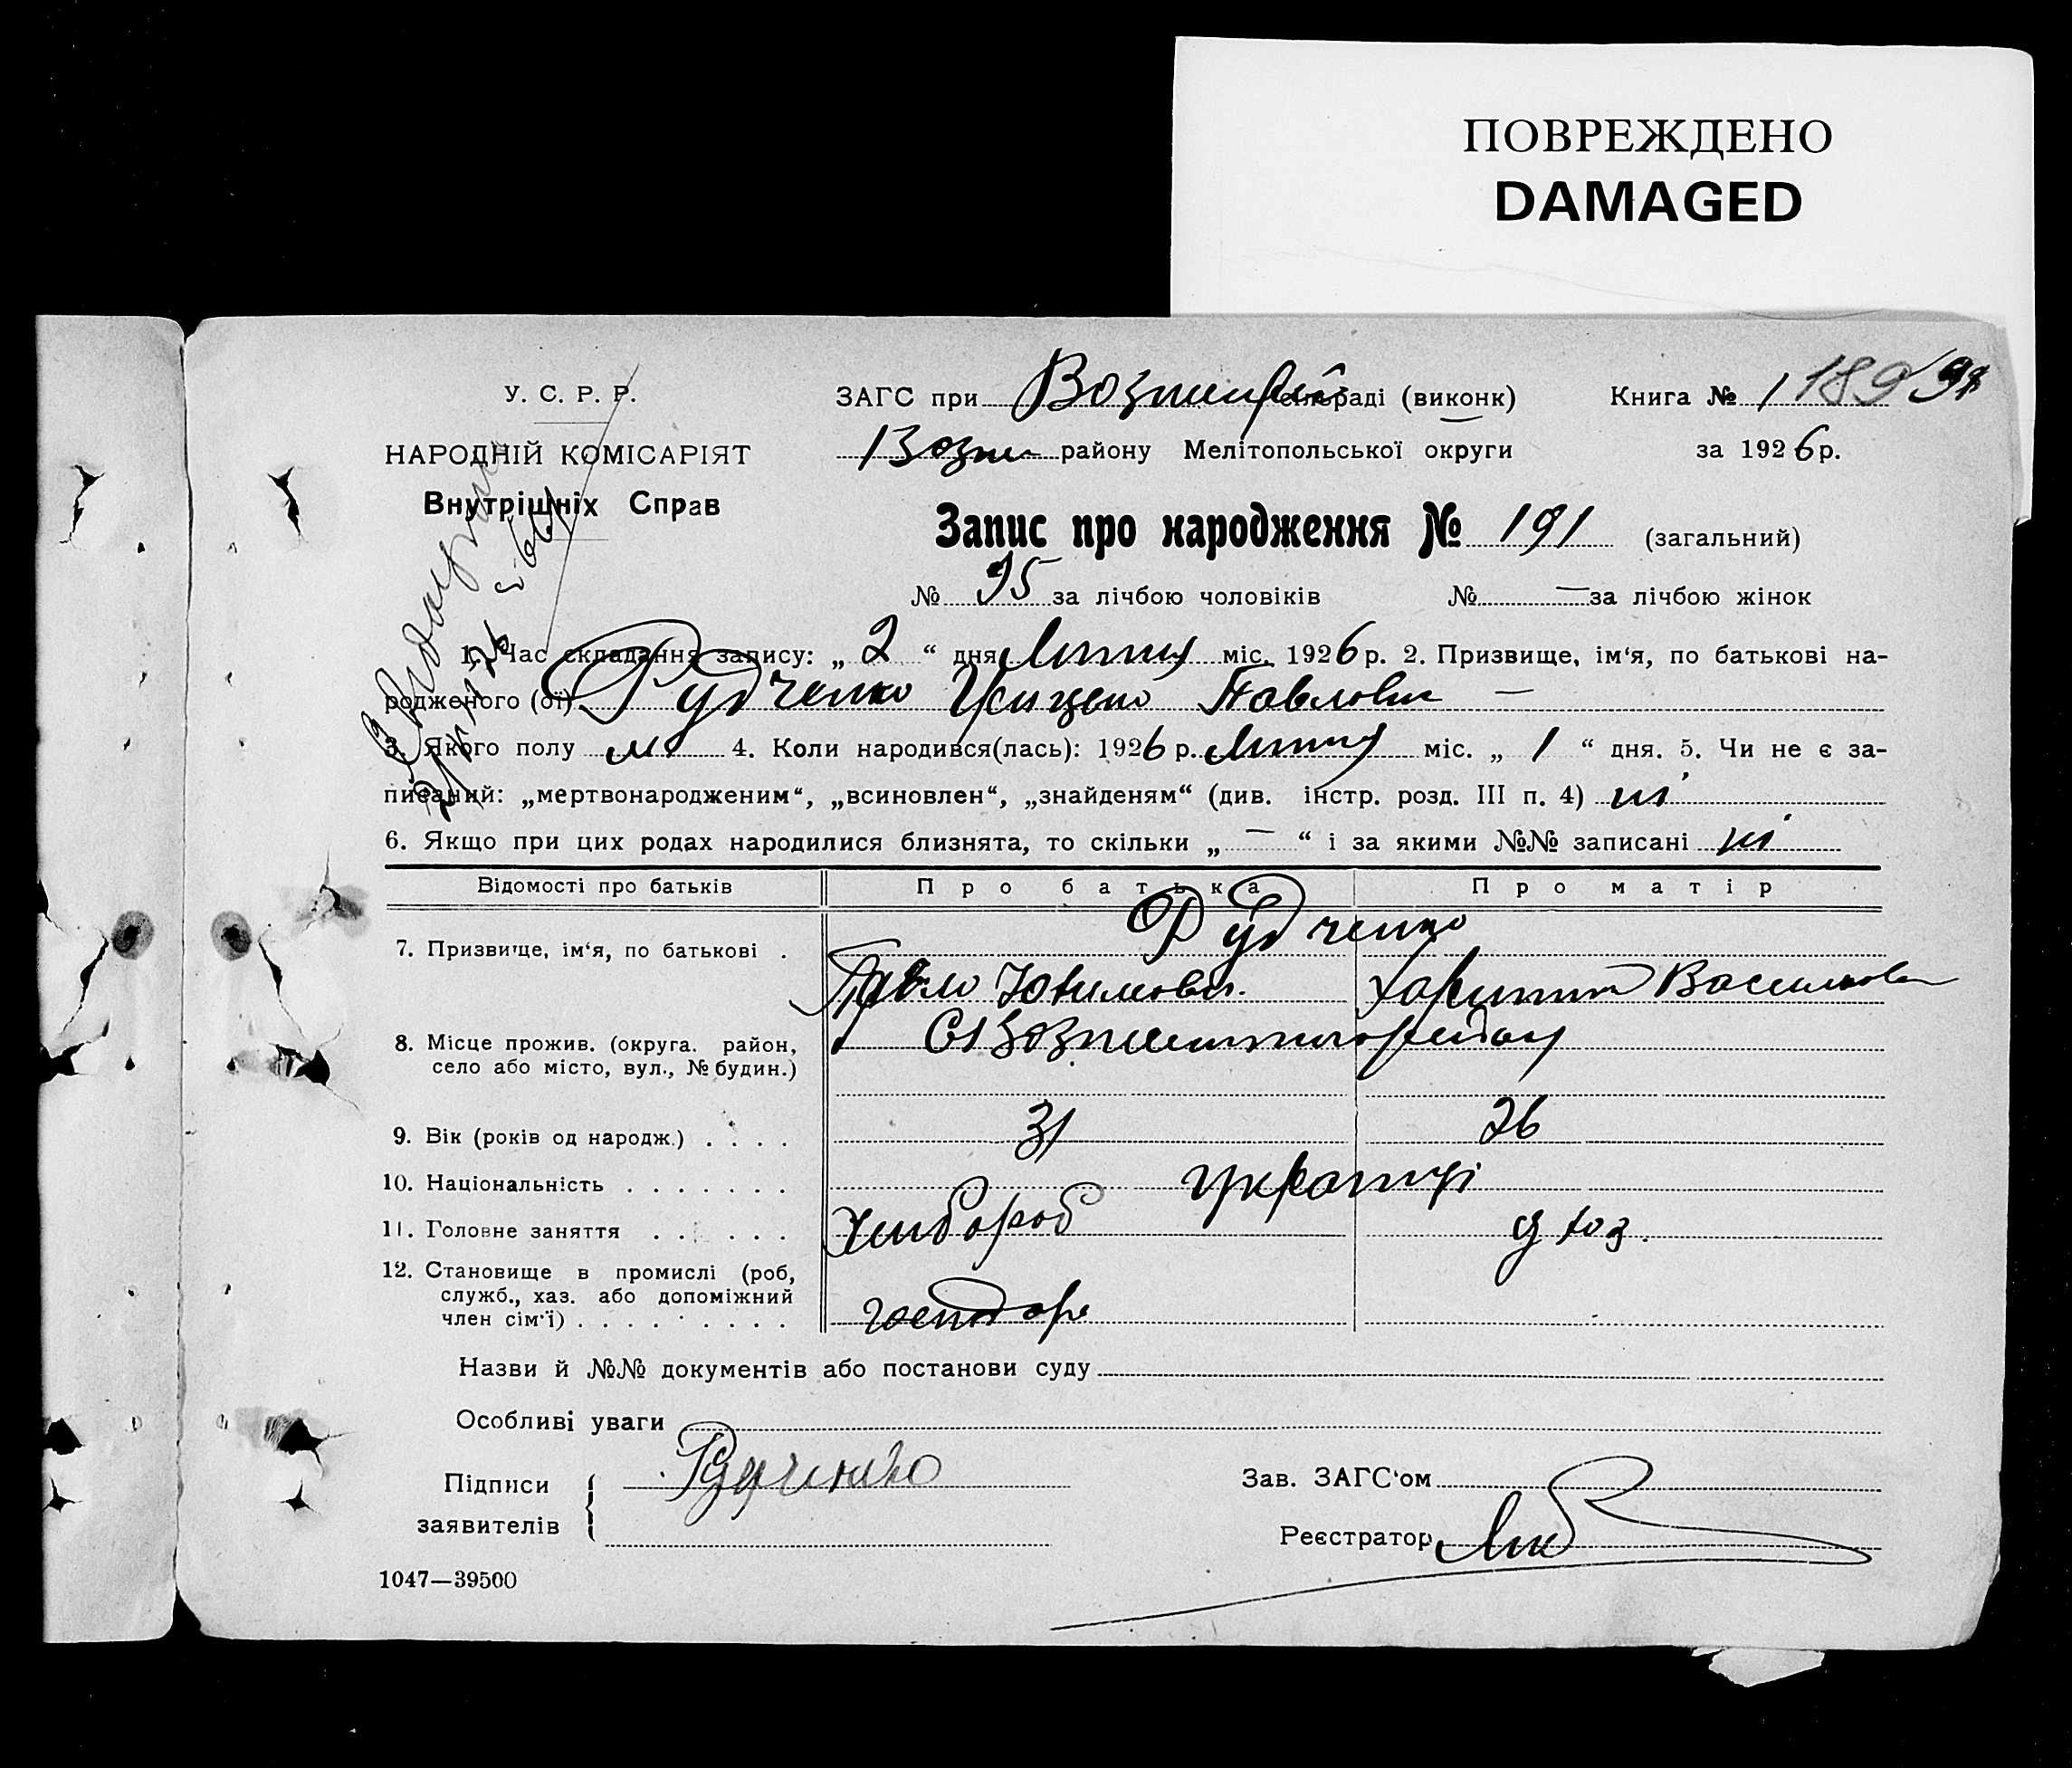 ПОВРЕЖДЕНО
DAMAGED
У. С. Р. Р.
НАРОДНІЙ КОМІСАРІЯТ
Внутрішніх Справ
ЗАГС при сільраді (виконк) Книга № 1 189
Возн району Мелітопольської округи за 1926 р.
Запис про народження № 191 (загальний)
№ 95 за лічбою чоловіків № — за лічбою жінок
1. Час складання запису: „ 2 “ дня Липня міс. 1926 р. 2. Призвище, ім‘я, по батькові на-
родженого (ої) Рудченко Павлович —
3. Якого полу м 4. Коли народився(лась): 1926 р. Липня міс. „ 1 “ дня. 5. Чи не є за-
писаний: „мертвонародженим“, „всиновлен“, „знайденям“ (див. інстр. розд. III п. 4) ні
6. Якщо при цих родах народилися близнята, то скільки „ — “ і за якими №№ записані ні
Відомості про батьків Про батька Про матір
Рудченко
7. Призвище, ім‘я, по батькові . Павло Юхимович. Харитина Васильовна
8. Місце прожив. (округа. район,
село або місто, вул., № будин.)
9. Вік (років од народж.) . . . . 31 26
10. Національність . . . . . . . українці
11. Головне заняття . . . . . . хлібороб д хоз.
12. Становище в промислі (роб,
служб., хаз. або допоміжний
член сім‘ї) . . . . . . . . . господар
Назви й №№ документів або постанови суду
Особливі уваги
Підписи Рудченко Зав. ЗАГС‘ом
заявителів Реєстратор
1047—39500